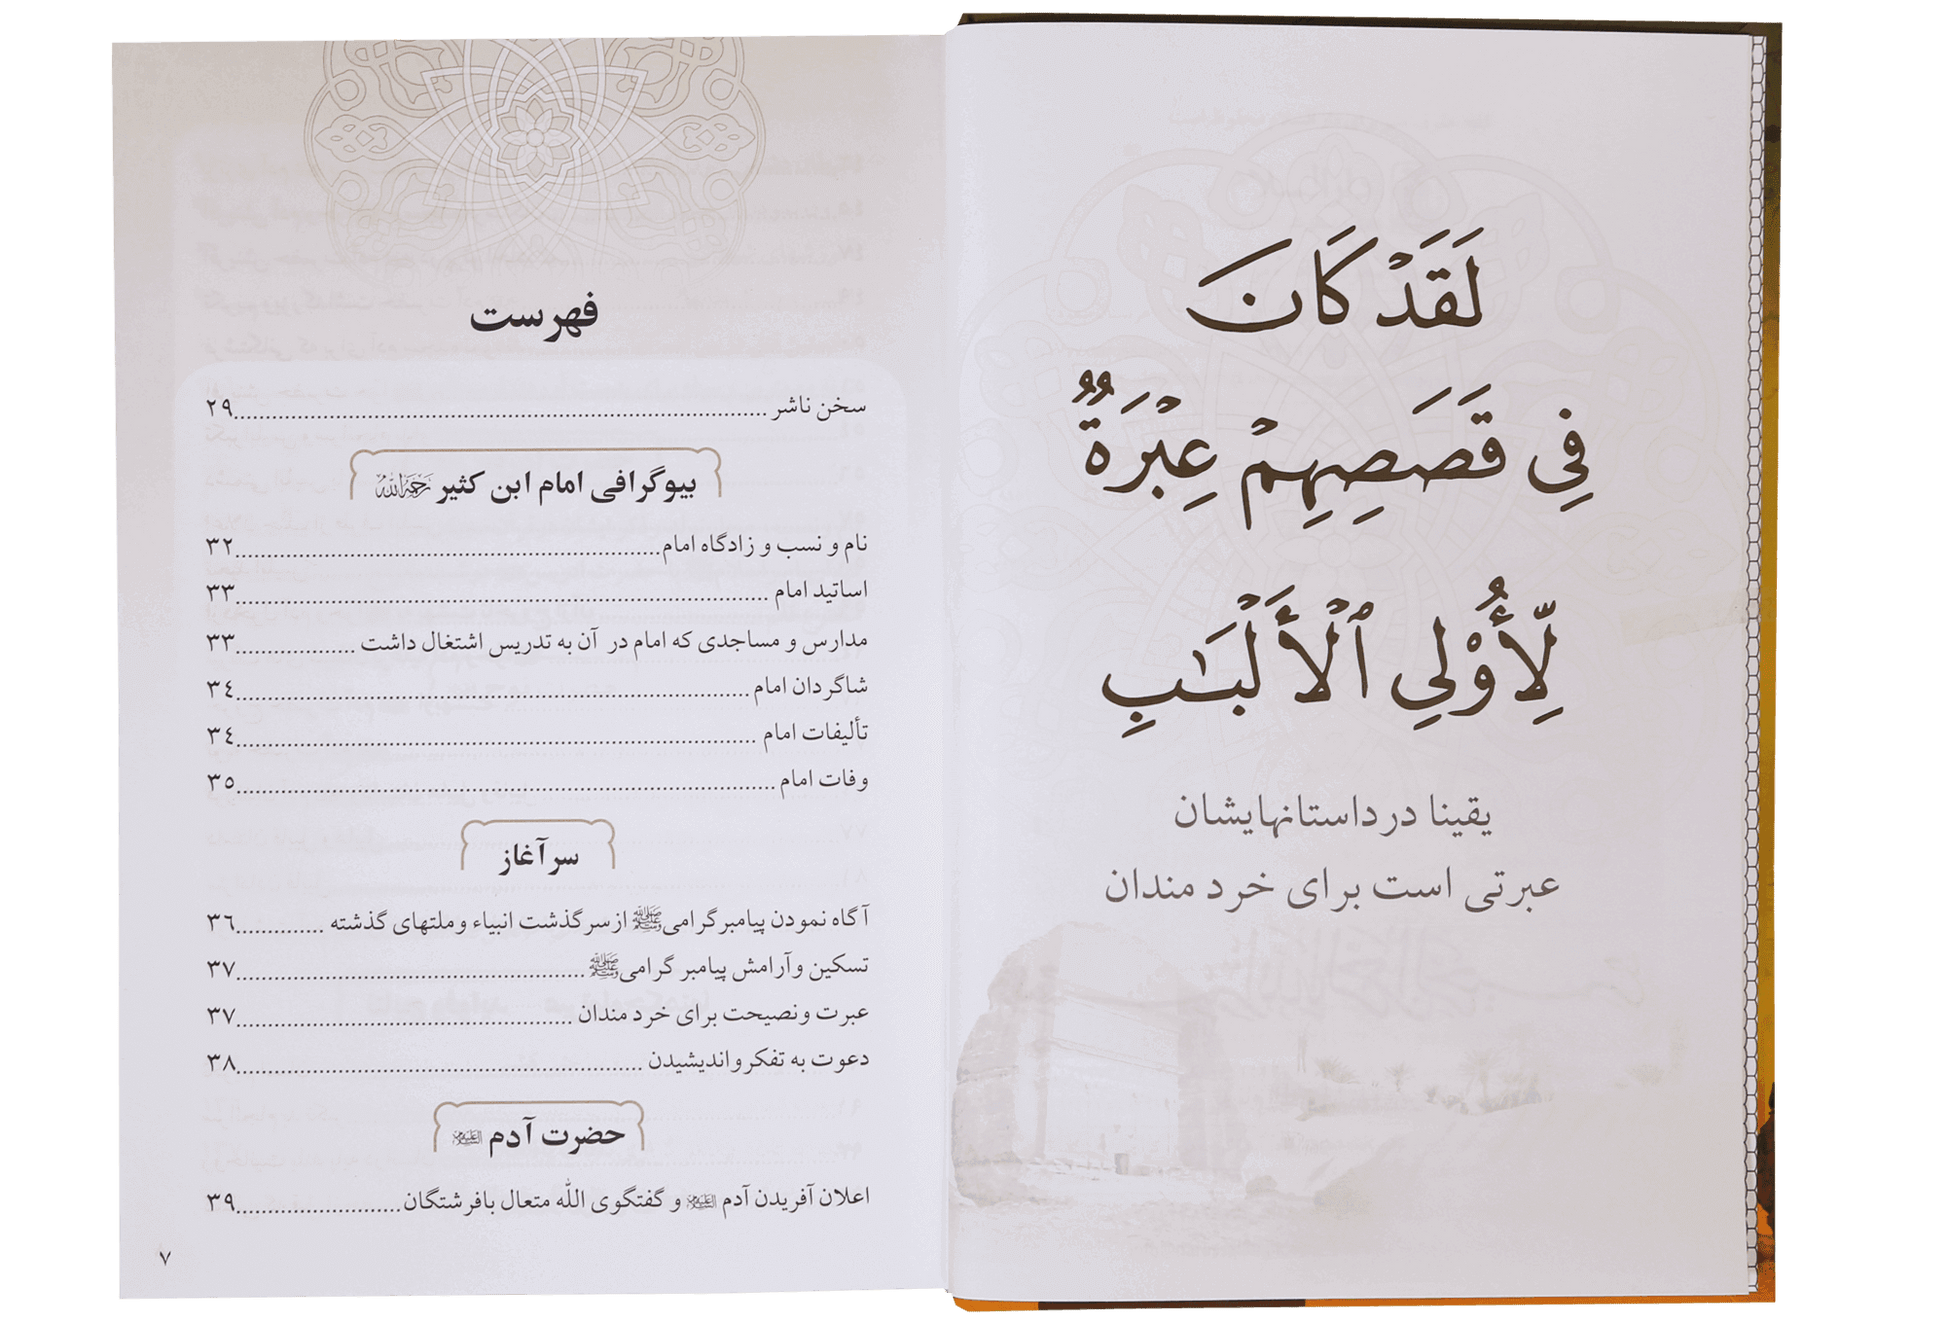 لَقَدۡ كَانَ
فِي قَصَصِهِمۡ عِبۡرَةٞ
لِّأُوْلِي ٱلۡأَلۡبَٰبِ
یقینا در داستانهایشان
عبرتی است برای خرد مندان
فهرست
سخن ناشر ........................ ٢٩
بیوگرافی امام ابن کثیر رَحِمَهُ ٱللَّهُ
نام و نسب و زادگاه امام ........................ ٣٢
اساتید امام ........................ ٣٣
مدارس و مساجدی که امام در آن به تدریس اشتغال داشت ........................ ٣٣
شاگردان امام ........................ ٣٤
تألیفات امام ........................ ٣٤
وفات امام ........................ ٣٥
سرآغاز
آگاه نمودن پیامبرگرامی ﷺ از سرگذشت انبیاء و ملتهای گذشته ........................ ٣٦
تسکین و آرامش پیامبر گرامی ﷺ ........................ ٣٧
عبرت و نصیحت برای خرد مندان ........................ ٣٧
دعوت به تفکر و اندیشیدن ........................ ٣٨
حضرت آدم علیه السلام
اعلان آفریدن آدم علیه السلام و گفتگوی الله متعال با فرشتگان ........................ ٣٩
٧